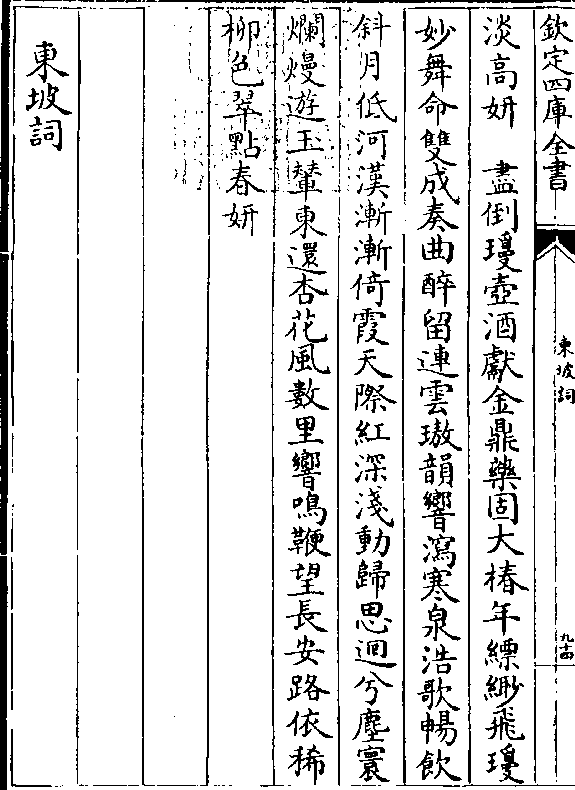 欽定四庫全書
東坡詞
九十四
淡高妍　盡倒瓊壺酒獻金鼎藥固大椿年縹緲飛瓊
妙舞命雙成奏曲醉留連雲璈韻響瀉寒泉浩歌暢飲
斜月低河漢漸漸倚霞天際紅深淺動歸思迴兮塵寰
爛熳遊玉輦東還杏花風數里響鳴鞭望長安路依稀
柳色翠點春妍
東坡詞